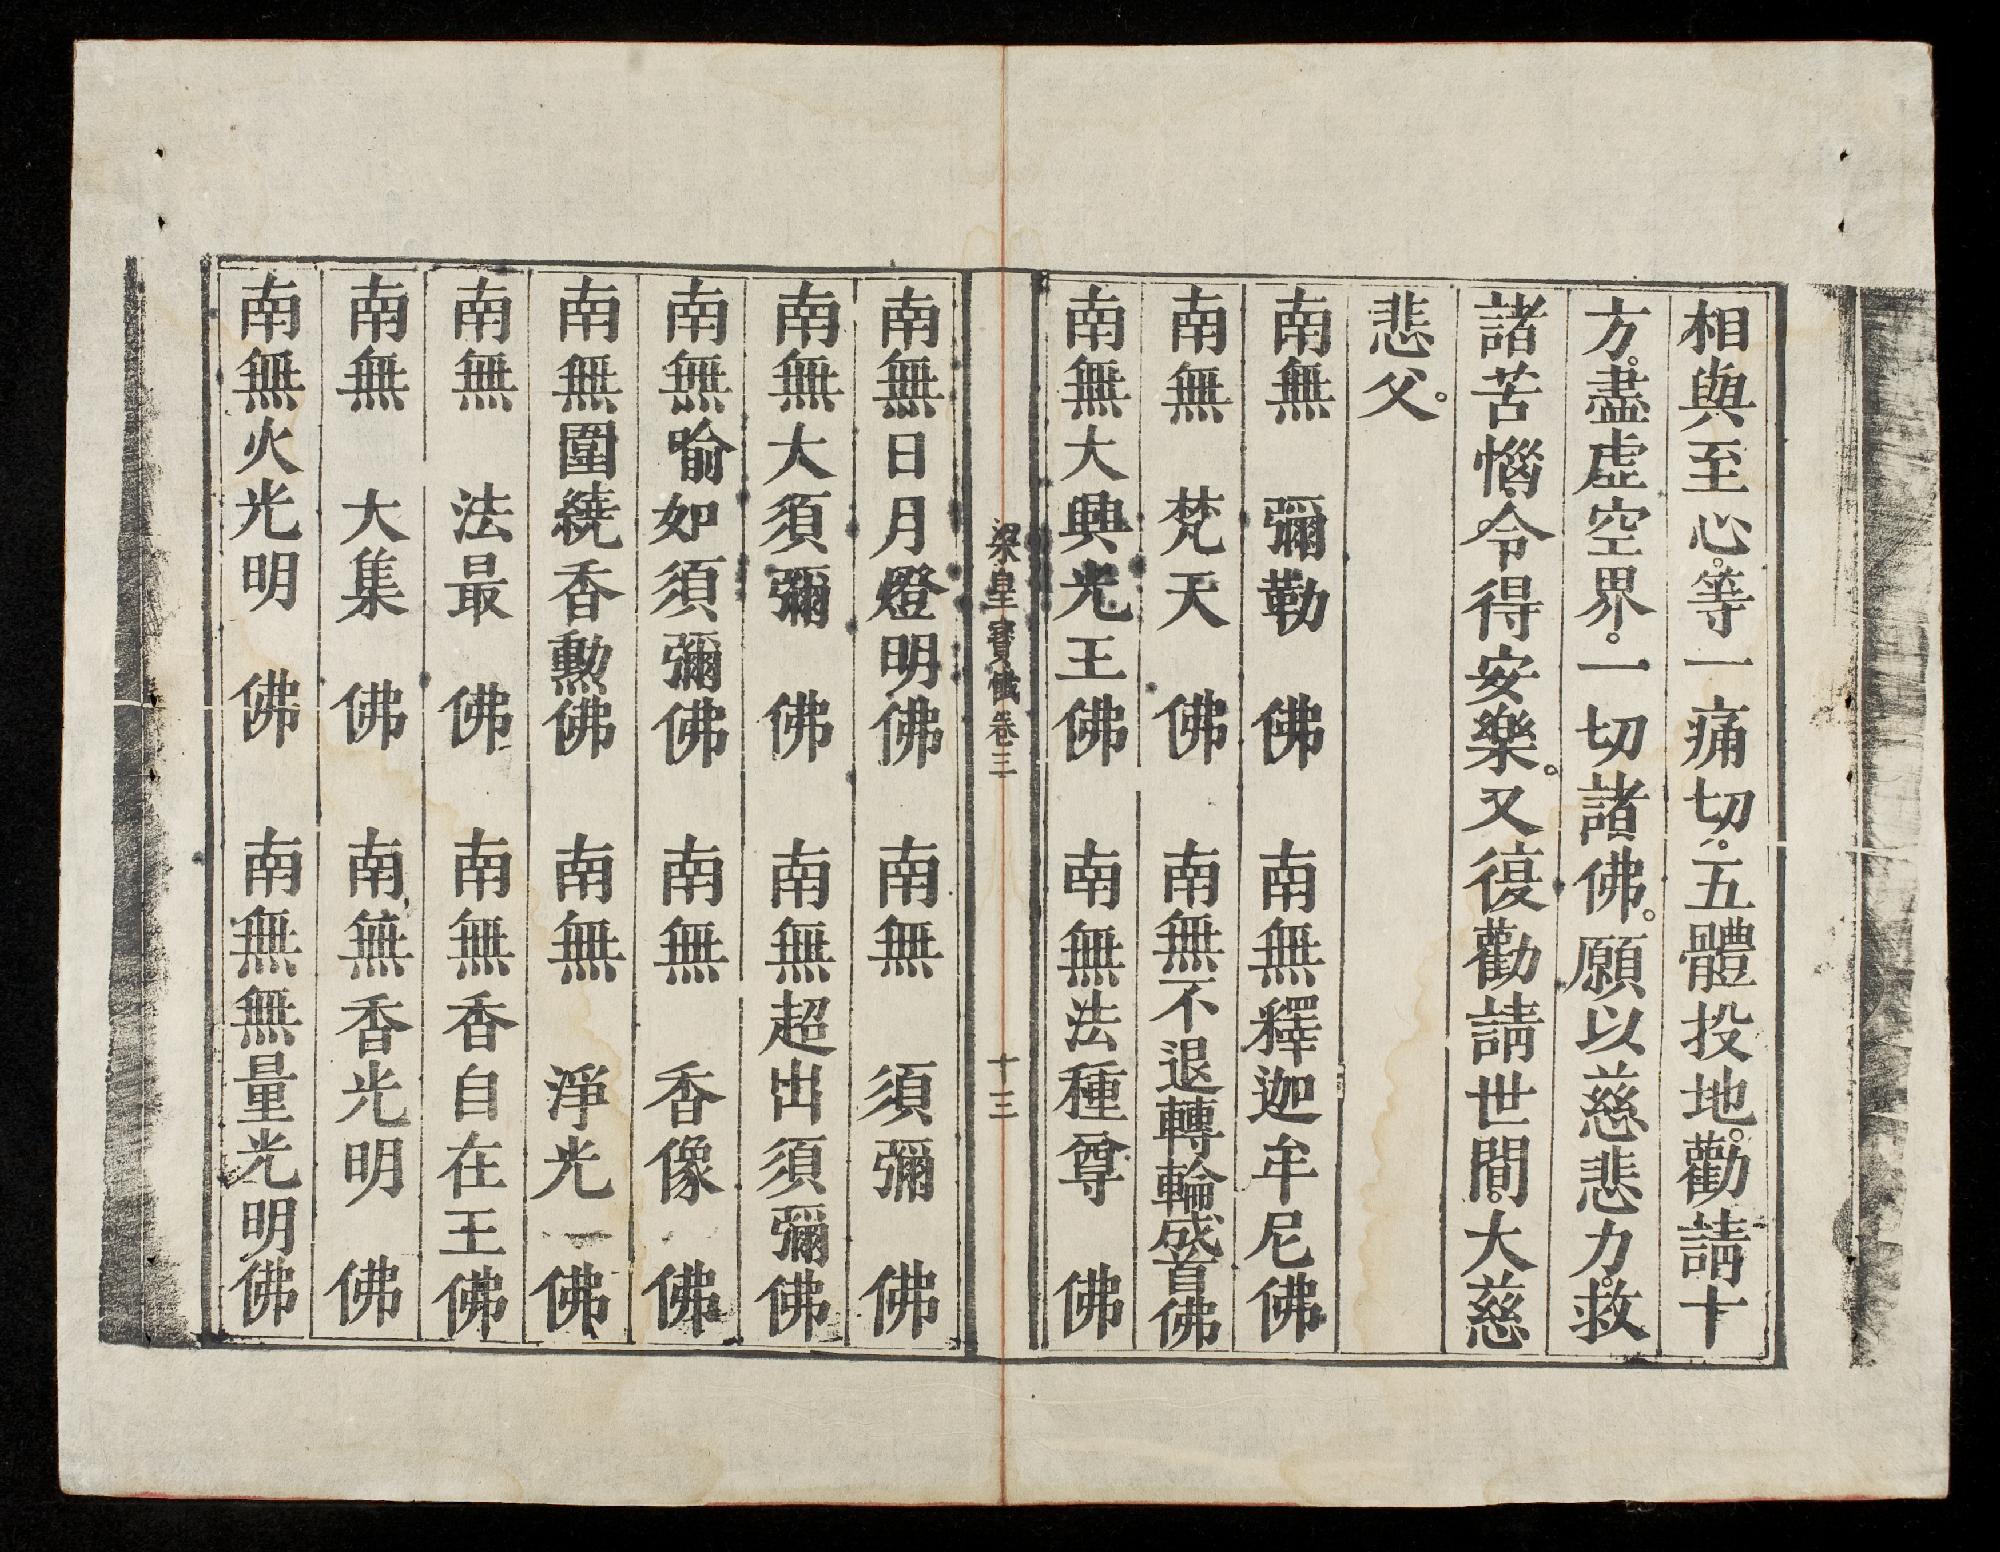 相與至心。等一痛切。五體投地。勸請十
方。盡虛空界。一切諸佛。願以慈悲力。救
諸苦惱。令得安樂。又復勸請世間。大慈
悲父。
南無彌勒佛 南無釋迦牟尼佛
南無梵天佛 南無不退轉輪成首佛
南無大興光王佛 南無法種尊佛
梁皇寶懺卷三 十三
南無日月燈明佛 南無須彌佛
南無大須彌佛 南無超出須彌佛
南無喻如須彌佛 南無香像佛
南無圍繞香勳佛 南無淨光佛
南無法最佛 南無香自在王佛
南無大集佛 南無香光明佛
南無火光明佛 南無無量光明佛